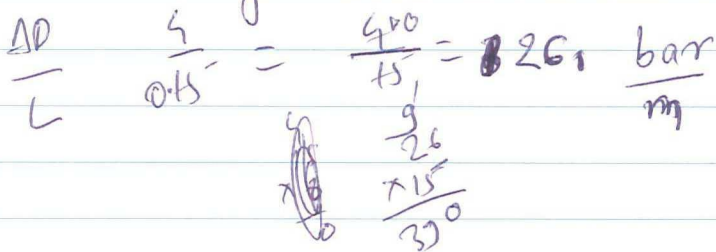 ΔP/L 4/0.15 = 400/15 = 26, bar/m
26
×15
390